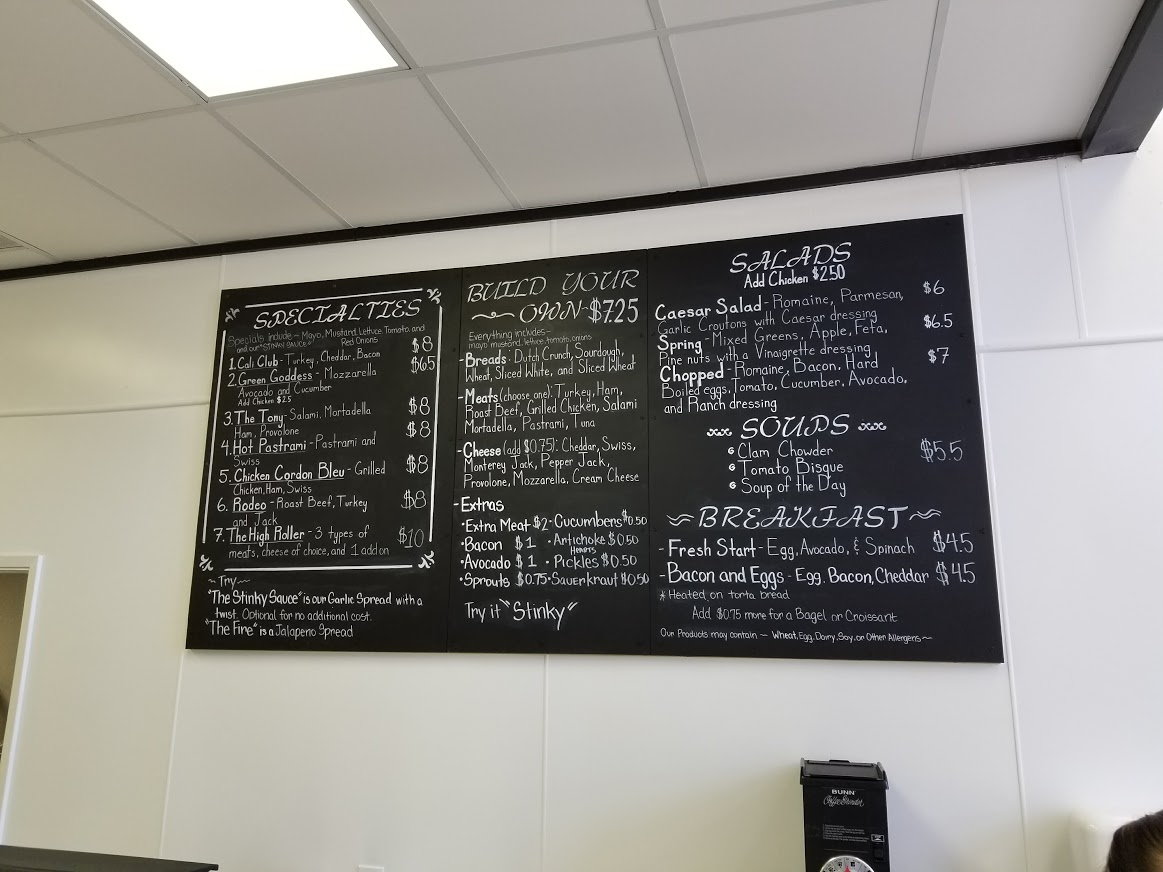 SPECIALTIES
Specials Include - Mayo, Mustard, Lettuce, Tomato, and
and our "STINKY SAUCE" Red Onions
1. Cali Club - Turkey, Cheddar, Bacon $8
2. Green Goddess - Mozzarella $6.5
Avocado and Cucumber
Add Chicken $2.5
3. The Tony - Salami, Mortadella $8
Ham, Provolone
4. Hot Pastrami - Pastrami and $8
Swiss
5. Chicken Cordon Bleu - Grilled $8
Chicken, Ham, Swiss
6. Rodeo - Roast Beef, Turkey $8
and Jack
7. The High Roller - 3 types of $10
meats, cheese of choice, and 1 add on
~ Try ~
"The Stinky Sauce" is our Garlic Spread with a
twist. Optional for no additional cost.
"The Fire" is a Jalapeño Spread
BUILD YOUR
OWN - $7.25
Everything includes -
mayo, mustard, lettuce, tomato, onions
- Breads: Dutch Crunch, Sourdough,
Wheat, Sliced White, and Sliced Wheat
- Meats (choose one): Turkey, Ham,
Roast Beef, Grilled Chicken, Salami
Mortadella, Pastrami, Tuna
- Cheese (add $0.75): Cheddar, Swiss,
Monterey Jack, Pepper Jack,
Provolone, Mozzarella, Cream Cheese
- Extras
• Extra Meat $2 • Cucumbers $0.50
• Bacon $1 • Antichoke $0.50
Hearts
• Avocado $1 • Pickles $0.50
• Sprouts $0.75 • Sauerkraut $0.50
Try it "Stinky"
SALADS
Add Chicken $2.50
Caesar Salad - Romaine, Parmesan, $6
Garlic Croutons with Caesar dressing
Spring - Mixed Greens, Apple, Feta, $6.5
Pine nuts with a Vinaigrette dressing
Chopped - Romaine, Bacon, Hard $7
Boiled eggs, Tomato, Cucumber, Avocado,
and Ranch dressing
SOUPS
Clam Chowder $5.5
Tomato Bisque
Soup of the Day
~ BREAKFAST ~
- Fresh Start - Egg, Avocado, & Spinach $4.5
- Bacon and Eggs - Egg, Bacon, Cheddar $4.5
* Heated on torta bread
Add $0.75 more for a Bagel or Croissant
Our Products may contain ~ Wheat, Egg, Dairy, Soy, or Other Allergens ~
BUNN
Coffee Grinder